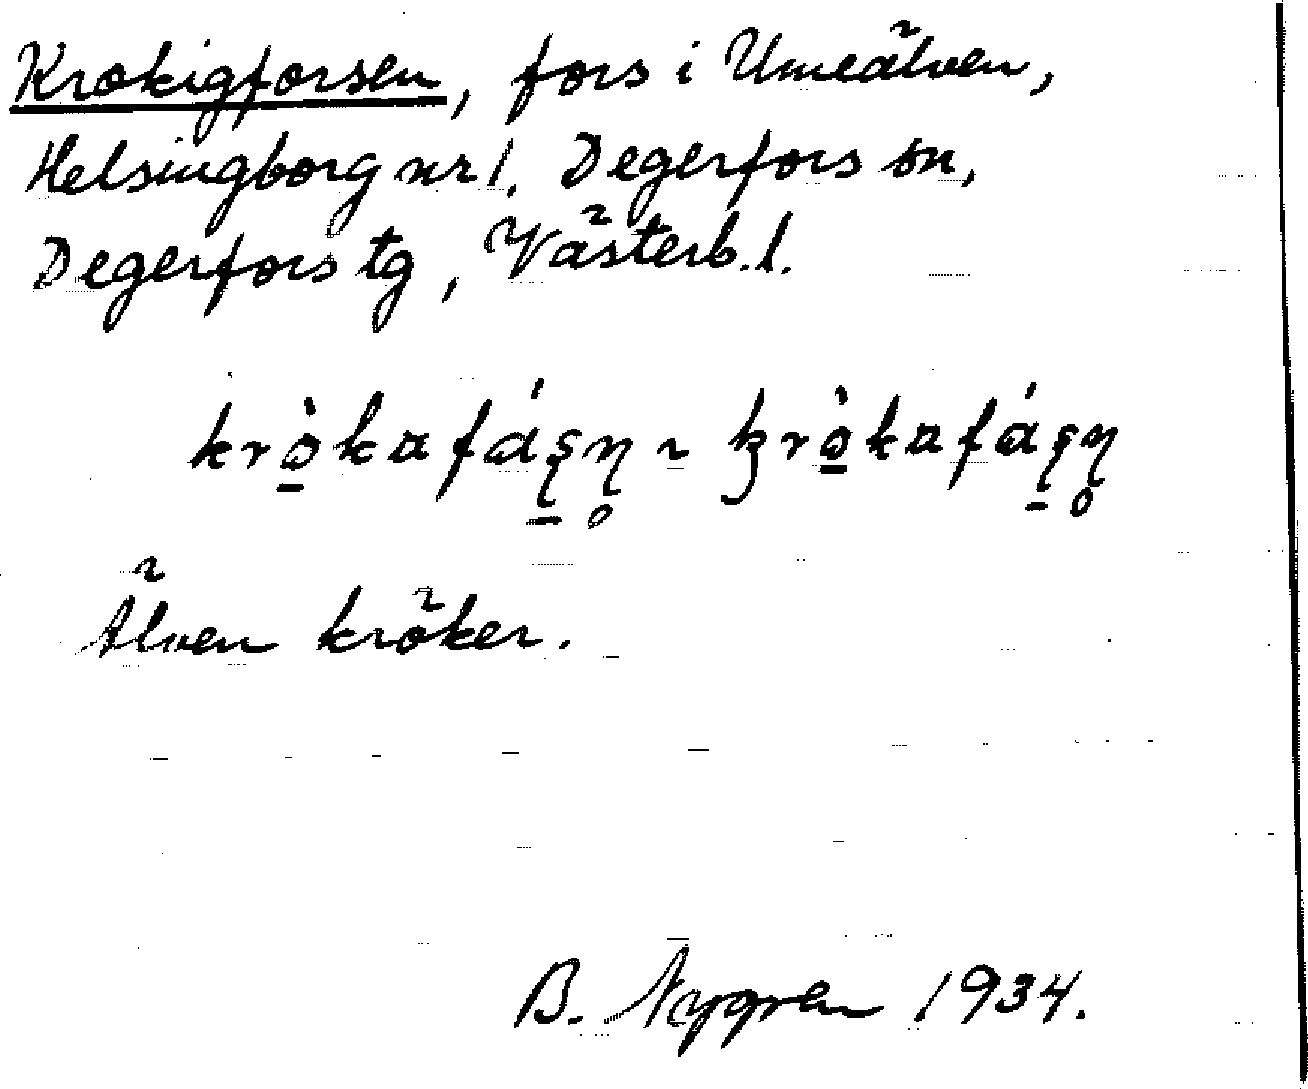 Krokigforsen, fors i Umeälven,
Helsingborg nr 1. Degerfors sn,
Degerfors tg, Västerb. l.
krò̱kafá̱ʂɳ̥ ~ ꝁrò̱kafá̱ʂɳ̥
Älven kröker.
B. Nygren 1934.